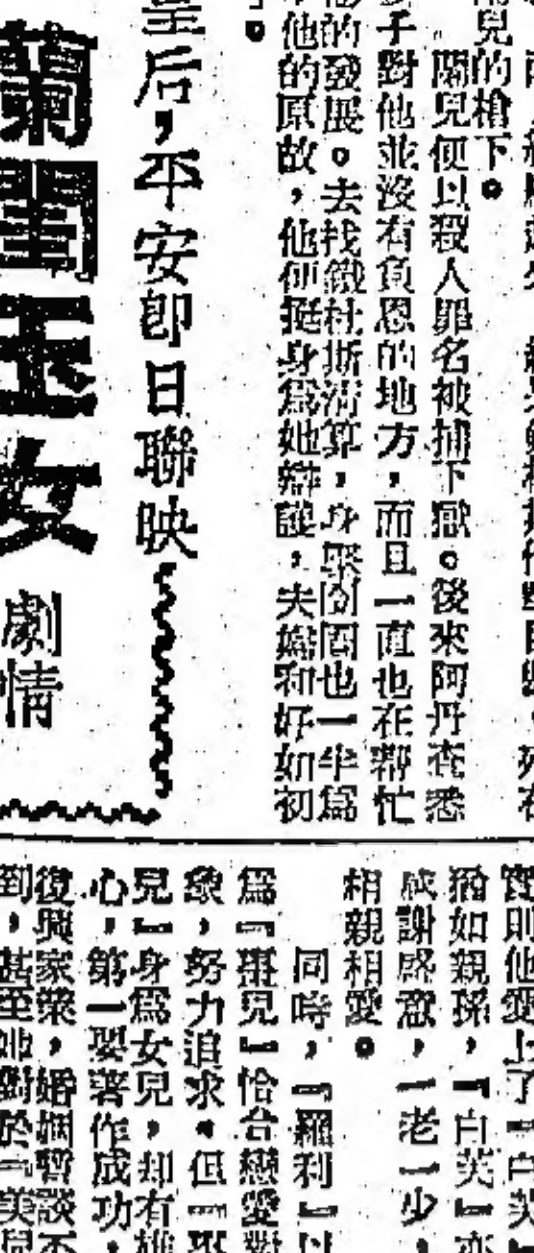 兒的槍下。
關兒便以殺人罪名被捕下獄。後來阿丹查悉
子對他並沒有負恩的地方，而且一直也在幫忙
他的發展。去找鐵杜斯清算，身繫囹圄也一半為
他的原故，他便挺身為她辯護，夫婦和好如初
。
皇后，平安即日聯映
蘭閨玉女
劇情
實則他愛上了『白芙』
猶如親孫，『白芙』亦
感謝盛意，一老一少，
相親相愛。
同時，『羅利』以
為『 兒』恰合戀愛對
象，努力追求。但『
兒』身為女兒，却有雄
心，第一要著作成功，
復興家業，婚姻暫談不
到，甚至她對於『美兒